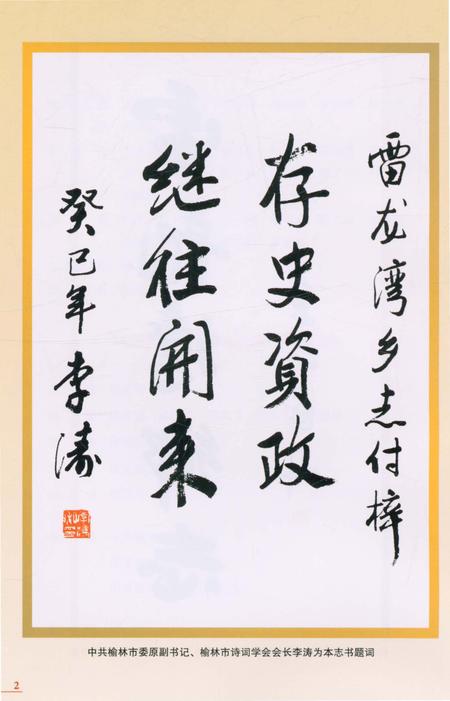 雷龙湾乡志付梓
存史資政
继往開来
癸巳年 李涛
中共榆林市委原副书记、榆林市诗词学会会长李涛为本志书题词
2